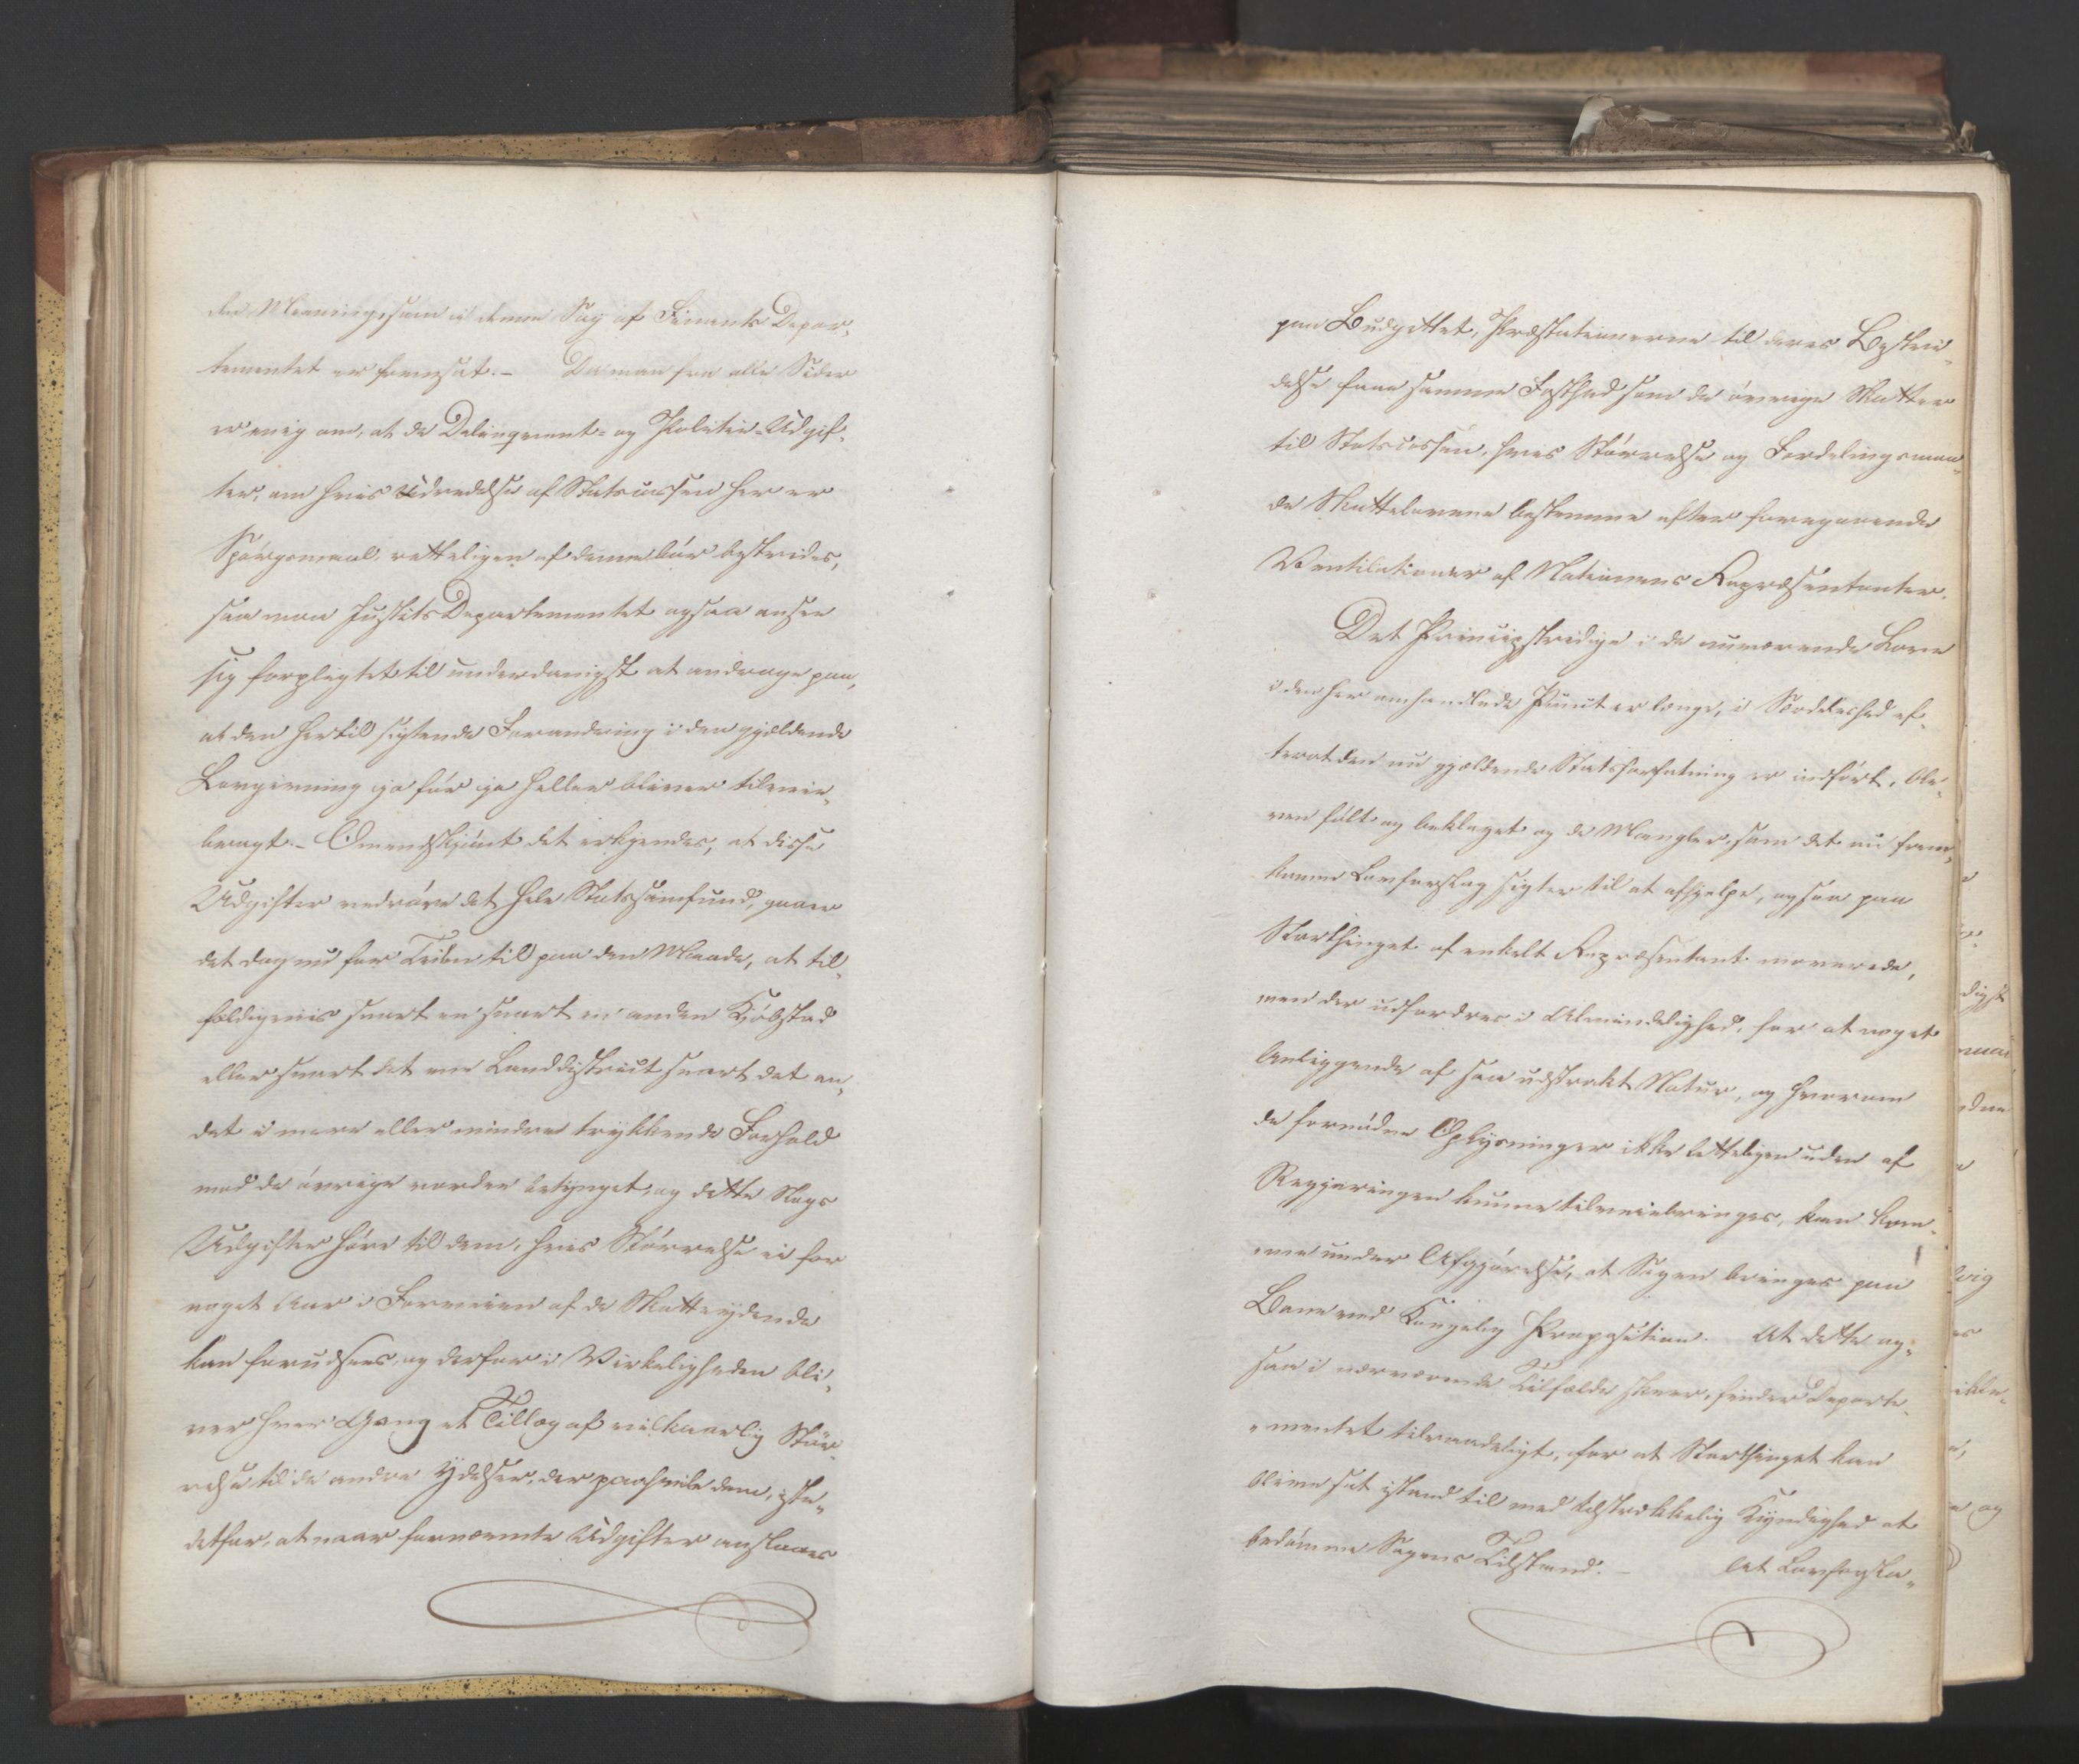 den Meeningssum i denne Sag af Finants Depar-
tementet er fremsat.- Da man fra alle Sider
er enig om, at de Delinqvent- og Politie-Udgif-
ter, om hvis Udredelse af Statscassen her er
Spørgsmaal, retteligen af denne bør bestrides,
saa maa Justits Departementet ogsaa ansee
sig forpligtet til underdanigst at andrage paa,
at den hertil sigtende Forandring i den gjældende
Lovgivning jo før jo heller bliver tilveie-
bragt.- Omendskjønt det erkjendes, at disse
Udgifter vedrøre det hele Statssamfund, gaaer
det dog nu for Tiden til paa den Maade, at til-
fældigviis snart en snart en anden Kjøbstad
eller snart det ene Landdistrict snart det an-
det i mere eller mindre trykkende Forhold
mod de øvrige vorder betynget, og dette Slags
Udgifter høre til dem, hvis Størrelse ei for
noget Aar i Forveien af de Skatteydende
kan forudsees, og derfor i Virkeligheden bli-
ver hver Gang et Tillæg af vilkaarlig Stør-
relse til de andre Ydelser, der paahvile dem, iste-
detfor, at naar fornævnte Udgifter ansloges
paa Budgettet, Præstationerne til deres Bestri-
delse faae samme Fasthed som de øvrige Skatter
til Statscassen, hvis Størrelse og Fordelingsmaa-
de Skattelovene bestemme efter foregaaende
Ventilationer af Nationens Repræsentanter.
Det Principstridige i de nuværende Love
i den her omhandlede Punct er længe, i Særdeleshed ef-
terat den nu gjældende Statsforfatning er indført, ble-
ven følt og beklaget og de Mangler, som det nu frem-
komne Lovforslag sigter til at afhjelpe, ogsaa paa
Storthinget af enkelt Repræsentant moverede,
men der udfordres i Almindelighed, for at noget
Anliggende af saa udstrakt Natur, og hvorom
de fornødne Oplysninger ikke letteligen uden af
Regjeringen kunne tilveiebringes, kan kom-
me under Afgjørelse, at Sagen bringes paa
Bane ved Kongelig Proposition. At dette og-
saa i nærværende Tilfælde skeer, finder Departe-
mentet tilraadeligt, for at Storthinget kan
blive sat istand til med tilstrækkelig Kyndighed at
bedømme Sagens Tilstand.- At Lovforsla-